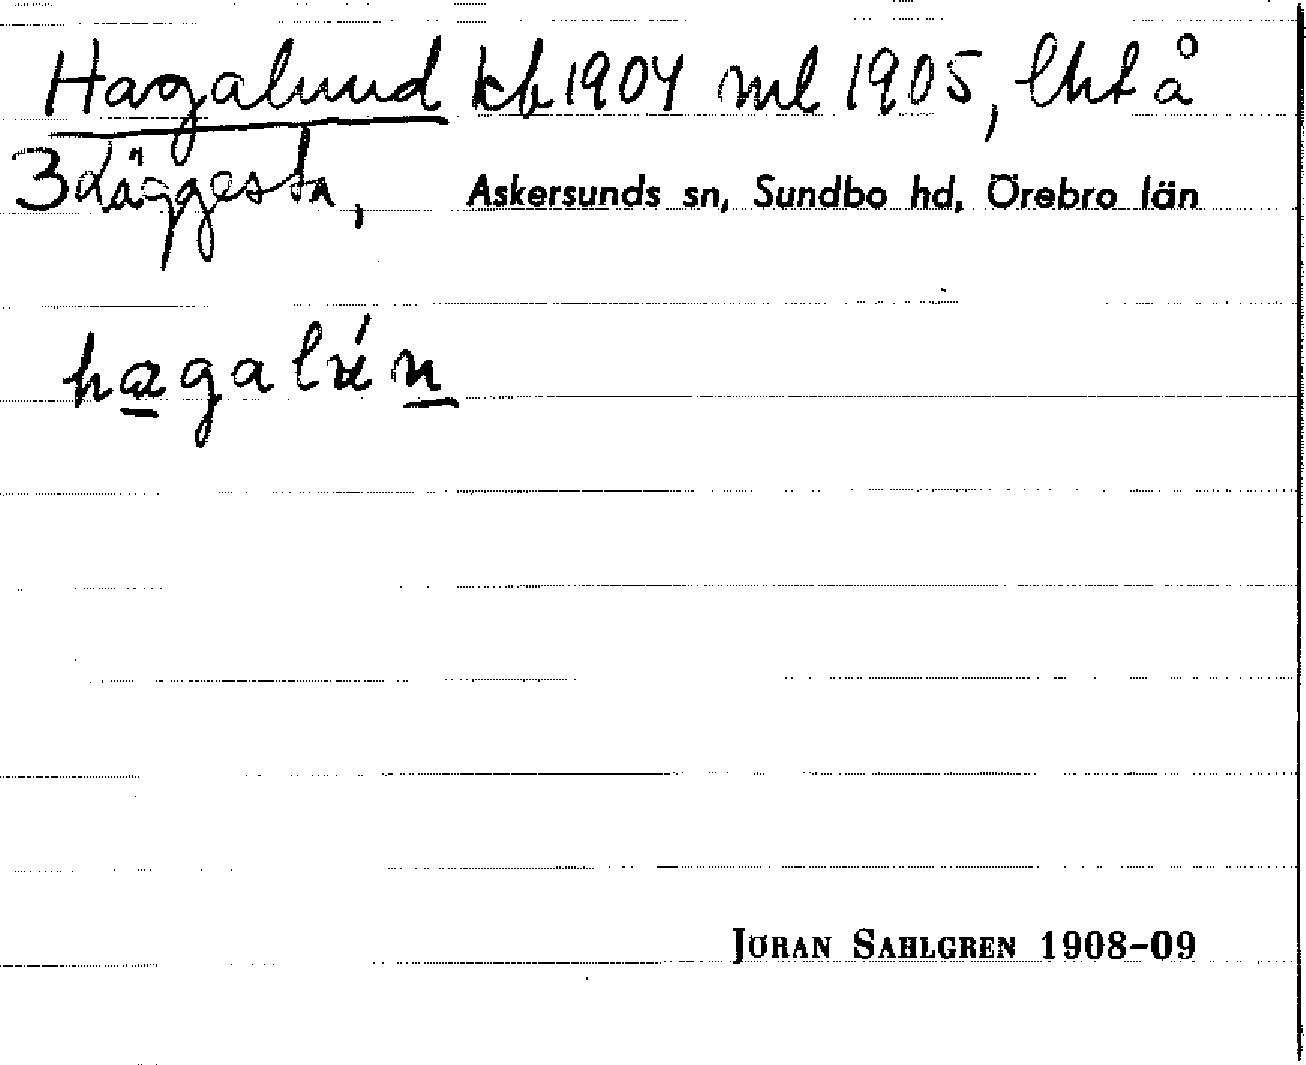 Hagalund kb 1904 ml 1905, lht å
3 Läggesta, Askersunds sn, Sundbo hd, Örebro län
hagalún
JÖRAN SAHLGREN 1908–09